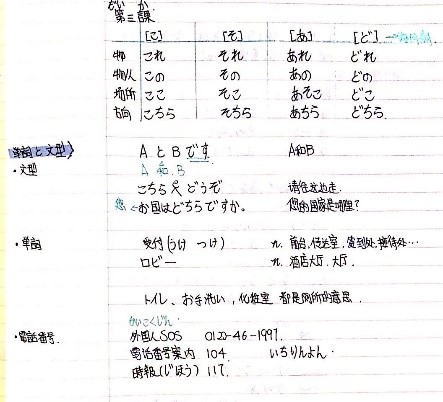 だい か
第三課
[こ] [そ] [あ] [ど]
物 これ それ あれ どれ
物/人 この その あの どの
場所 ここ そこ あそこ どこ
方向 こちら そちら あちら どちら
単詞と文型
・文型 AとBです A和B
A 和 B
こちらへ どうぞ 请往这边走.
您←お国はどちらですか。 您的国家是哪里?
・単詞 受付(うけ つけ) n. 前台.传达室.
ロビー n. 酒店大厅.大厅.
トイレ、お手洗い,化粧室 都是厕所的意思.
がいこくじん
・電話番号 外国人SOS 0120-46-1997.
電話番号案内 104 いちりんよん.
時報(じほう) 117.